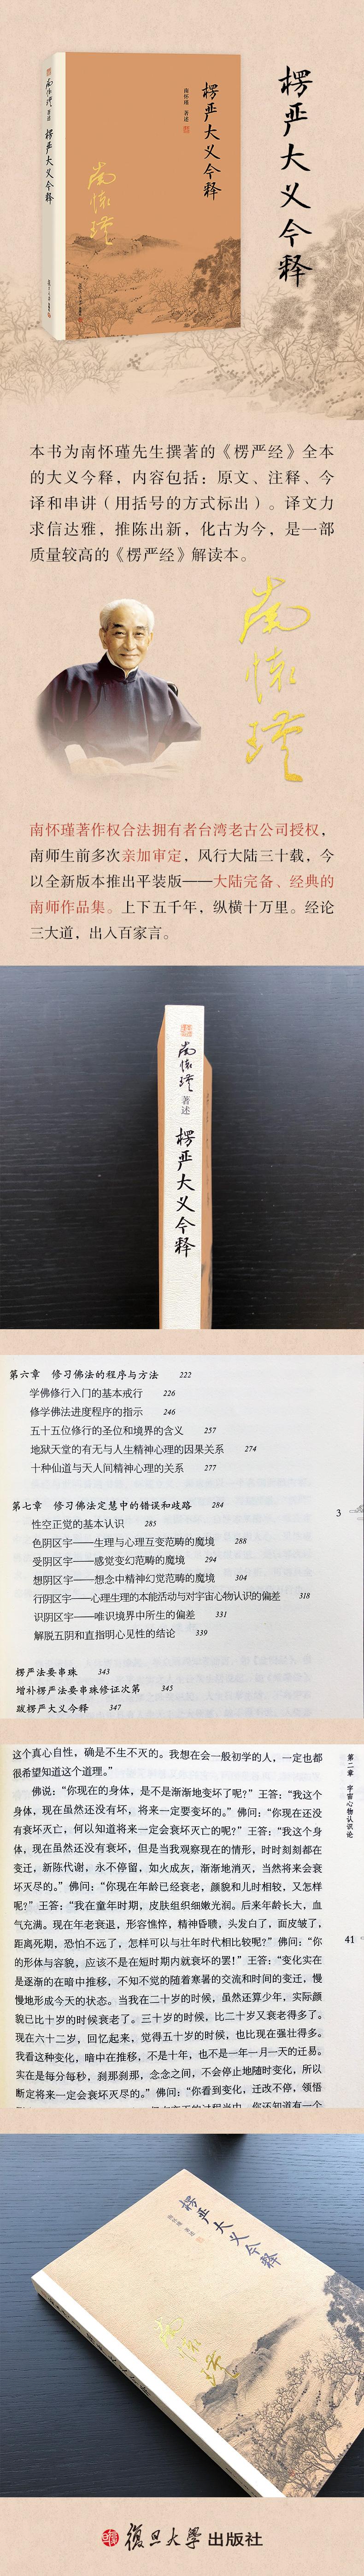 南怀瑾 著述
楞严大义今释
南怀瑾 著述
楞严大义今释
南怀瑾
楞严大义今释
本书为南怀瑾先生撰著的《楞严经》全本
的大义今释，内容包括：原文、注释、今
译和串讲（用括号的方式标出）。译文力
求信达雅，推陈出新，化古为今，是一部
质量较高的《楞严经》解读本。
南怀瑾
南怀瑾著作权合法拥有者台湾老古公司授权，
南师生前多次亲加审定，风行大陆三十载，今
以全新版本推出平装版——大陆完备、经典的
南师作品集。上下五千年，纵横十万里。经论
三大道，出入百家言。
南怀瑾 著述
楞严大义今释
第六章 修习佛法的程序与方法 222
学佛修行入门的基本戒行 226
修学佛法进度程序的指示 246
五十五位修行的圣位和境界的含义 257
地狱天堂的有无与人生精神心理的因果关系 274
十种仙道与天人间精神心理的关系 277
第七章 修习佛法定慧中的错误和歧路 284
性空正觉的基本认识 285
色阴区宇——生理与心理互变范畴的魔境 288
受阴区宇——感觉变幻范畴的魔境 294
想阴区宇——想念中精神幻觉范畴的魔境 304
行阴区宇——心理生理的本能活动与对宇宙心物认识的偏差 318
识阴区宇——唯识境界中所生的偏差 331
解脱五阴和直指明心见性的结论 339
楞严法要串珠 343
增补楞严法要串珠修证次第 345
跋楞严大义今释 347
3
这个真心自性，确是不生不灭的。我想在会一般初学的人，一定也都
很希望知道这个道理。”
佛说：“你现在的身体，是不是渐渐地变坏了呢？”王答：“我这个
身体，现在虽然还没有坏，将来一定要变坏的。”佛问：“你现在还没
有衰坏灭亡，何以知道将来一定会衰坏灭亡的呢？”王答：“我这个身
体，现在虽然没有衰坏，但是当我观察现在的情形，时时刻刻都在
变迁，新陈代谢，永不停留，如火成灰，渐渐地消灭，当然将来会衰
坏灭尽的。”佛问：“你现在年龄已经衰老，颜貌和儿时相较，又怎样
呢？”王答：“我在童年时期，皮肤组织细嫩光润。后来年龄长大，血
气充满。现在年老衰退，形容憔悴，精神昏聩，头发白了，面皮皱了，
距离死期，恐怕不远了，怎样可以与壮年时代相比较呢？”佛问：“你
的形体与容貌，应该不是在短时期内就衰坏的罢！”王答：“变化实在
是逐渐的在暗中推移，不知不觉的随着寒暑的交流和时间的变迁，慢
慢地形成今天的状态。当我在二十岁的时候，虽然还算少年，实际颜
貌已比十岁的时候衰老了。三十岁的时候，比二十岁又衰老得多了。
现在六十二岁，回忆起来，觉得五十岁的时候，也比现在强壮得多。
我看这种变化，暗中在推移，不是十年，也不是一年一月一天的迁易。
实在是每分每秒，刹那刹那，念念之间，不会停止地随时变化，所以
断定将来一定会衰坏灭尽的。”佛问：“你看到变化，迁改不停，领悟
第二章 宇宙心物认识论
41
楞严大义今释
南怀瑾 著述
南怀瑾
復旦大學出版社